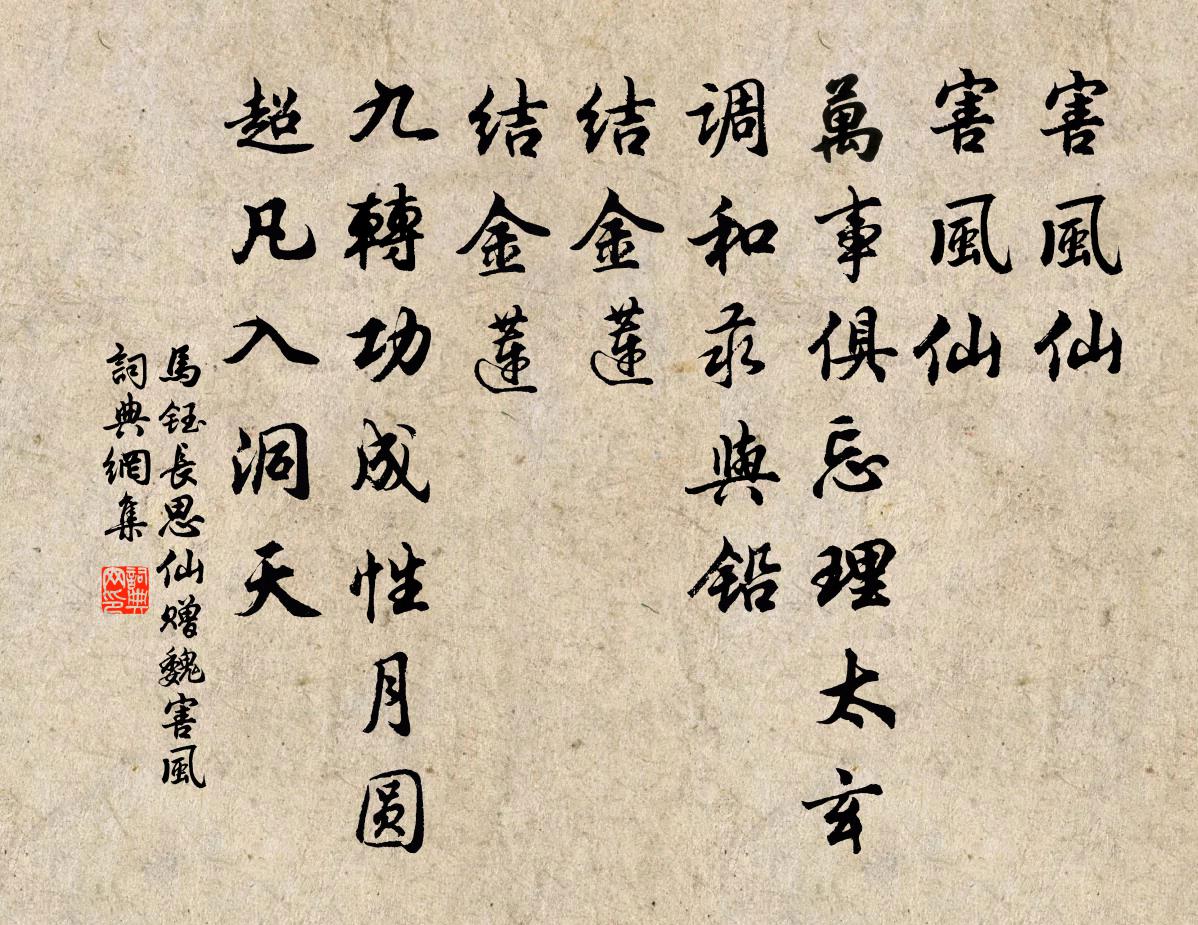 害風仙
害風仙
萬事俱忘理太玄
调和汞與铅
结金蓮
结金蓮
九轉功成性月圆
超凡入洞天
馬鈺長思仙赠魏害風
詞典網集
詞典网印